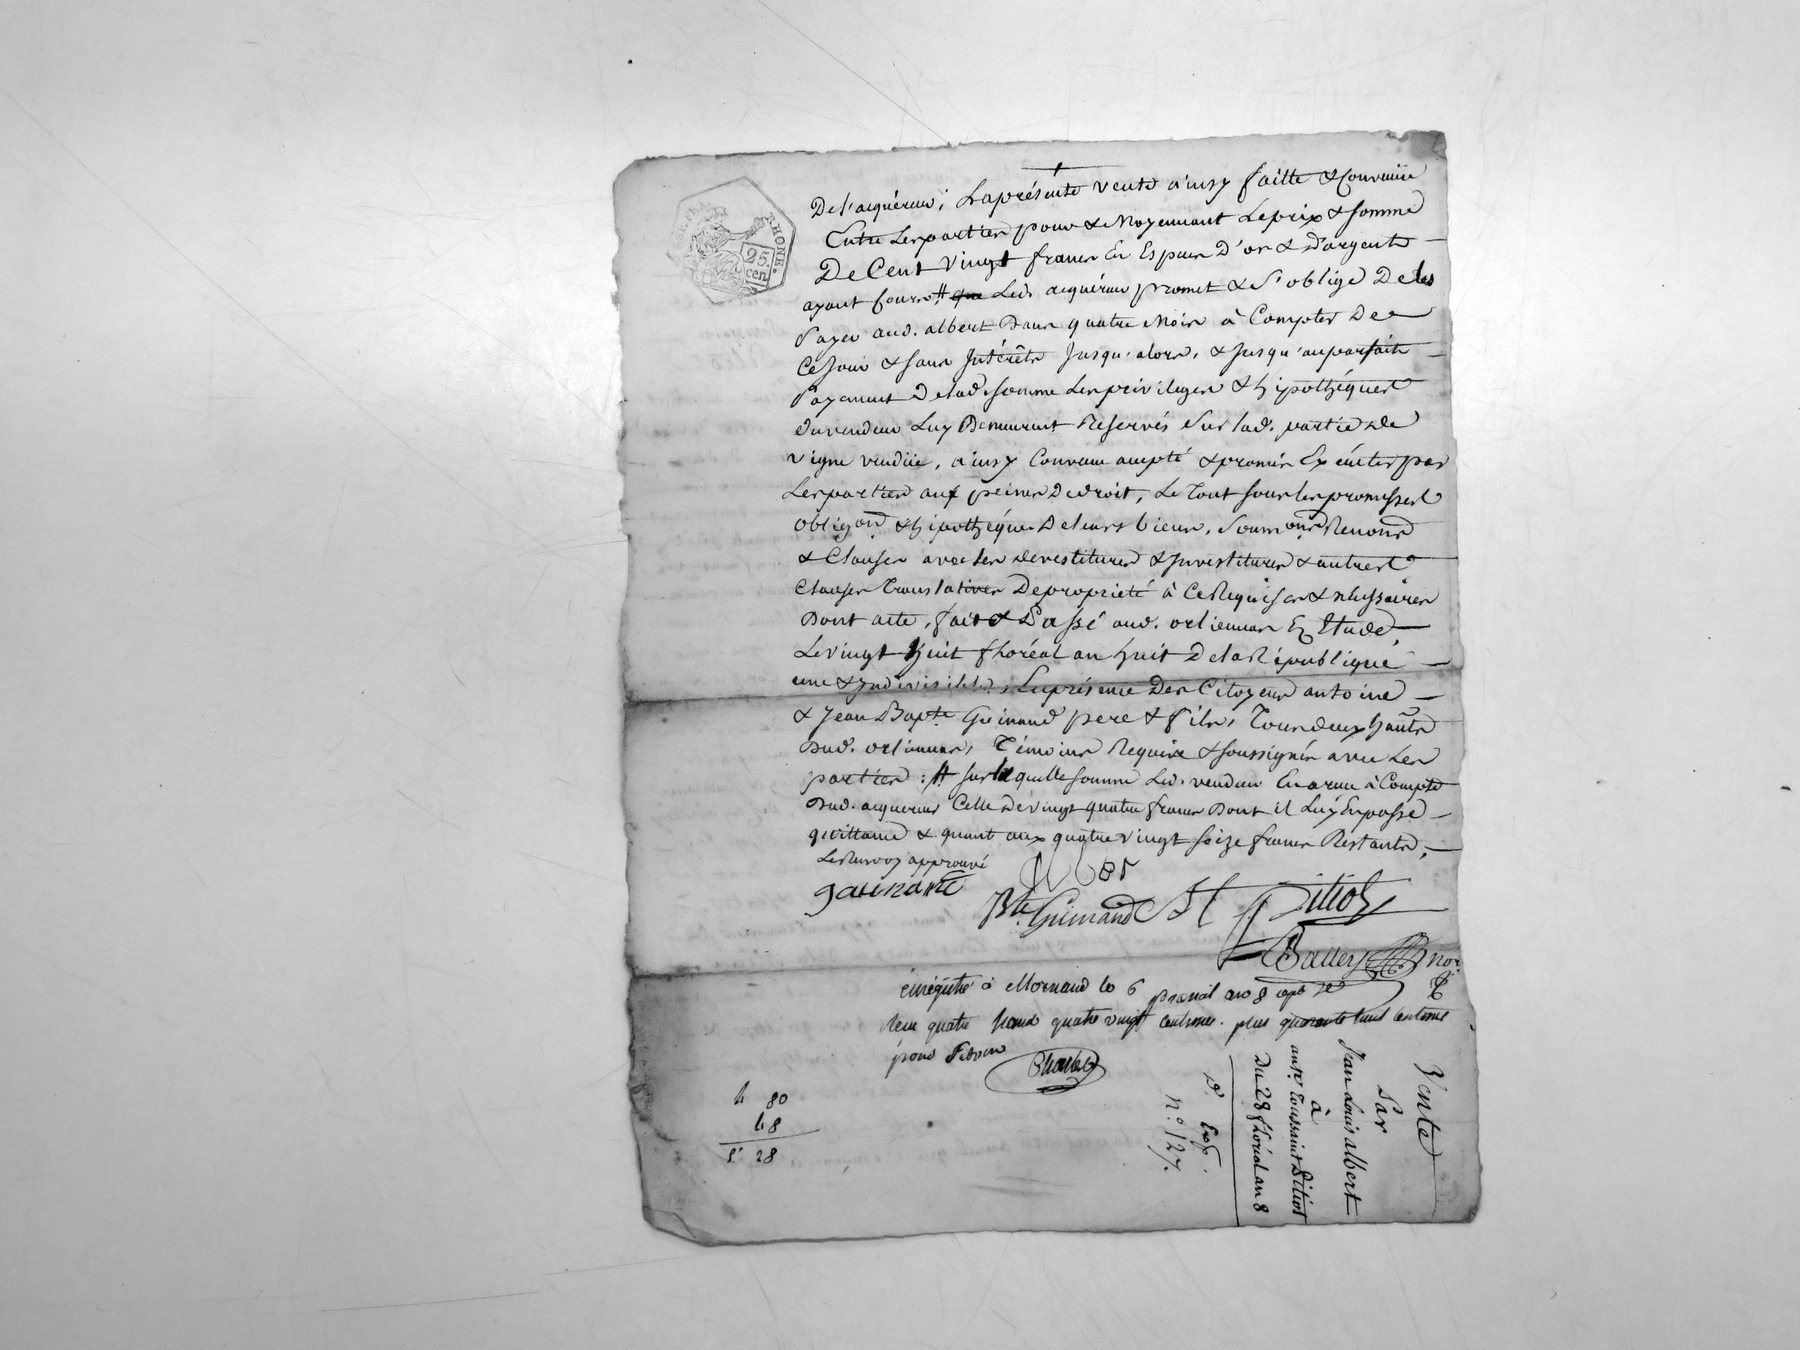 RHONE.
25.
cen
De l'acquéreur; La présente vente ainsy faitte & Convenüe
Entre Les parties pour & Moyennant Le prix & somme
De Cent Vingt francs En Espèces D'or & d'argent
ayant cours # Led. acquéreur promet & s'oblige De les
Payer aud. albert Dans quatre Mois à Compter De
Ce jour & sans Intérêts Jusqu'alors, & Jusqu'au parfait
Payement De lad. somme Les privileges & hipothéques
du vendeur Luy Demeurent Reservés Sur lad. partie de
vigne vendüe, ainsy Convenu accepté & promis Exécuter par
Les parties aux peines De droit, Le Tout sous les promesses
obligaons & hipothéques De leurs biens, soumons Renons
& Clauses avec les devestitures & Investitures & autres
Clauses Translatives De propriété à Ce Requises & nécessaires
Dont acte, fait & Passé aud. orliennas En Etude,
Le vingt huit floréal an huit De la République
une & Indivisible, En présence Des Citoyens antoine
& Jean Bapte. Guinand pere & fils, Tous deux hants
Dud. orliennas, Témoins Requis & soussignés avec Les
parties : # sur laquelle somme Led. vendeur En a reçu à Compte
Dud. acquereur Celle De vingt quatre francs Dont il Luy En passe
quittance & quant aux quatre vingt seize francs Restants,
Le Renvoy approuvé
Bte. Guinand
Pitiot
Ballery
nore.
Enregistré à Mornand le 6 prairial an 8
Reçu quatre francs quatre vingt centimes. plus quarante huit centimes
pour
4 80
48
5 28
Vente
Par
Jean Louis albert
à
ante. Toussaint Pitiot
Du 28 floréal an 8
Exp.
n.° 127.